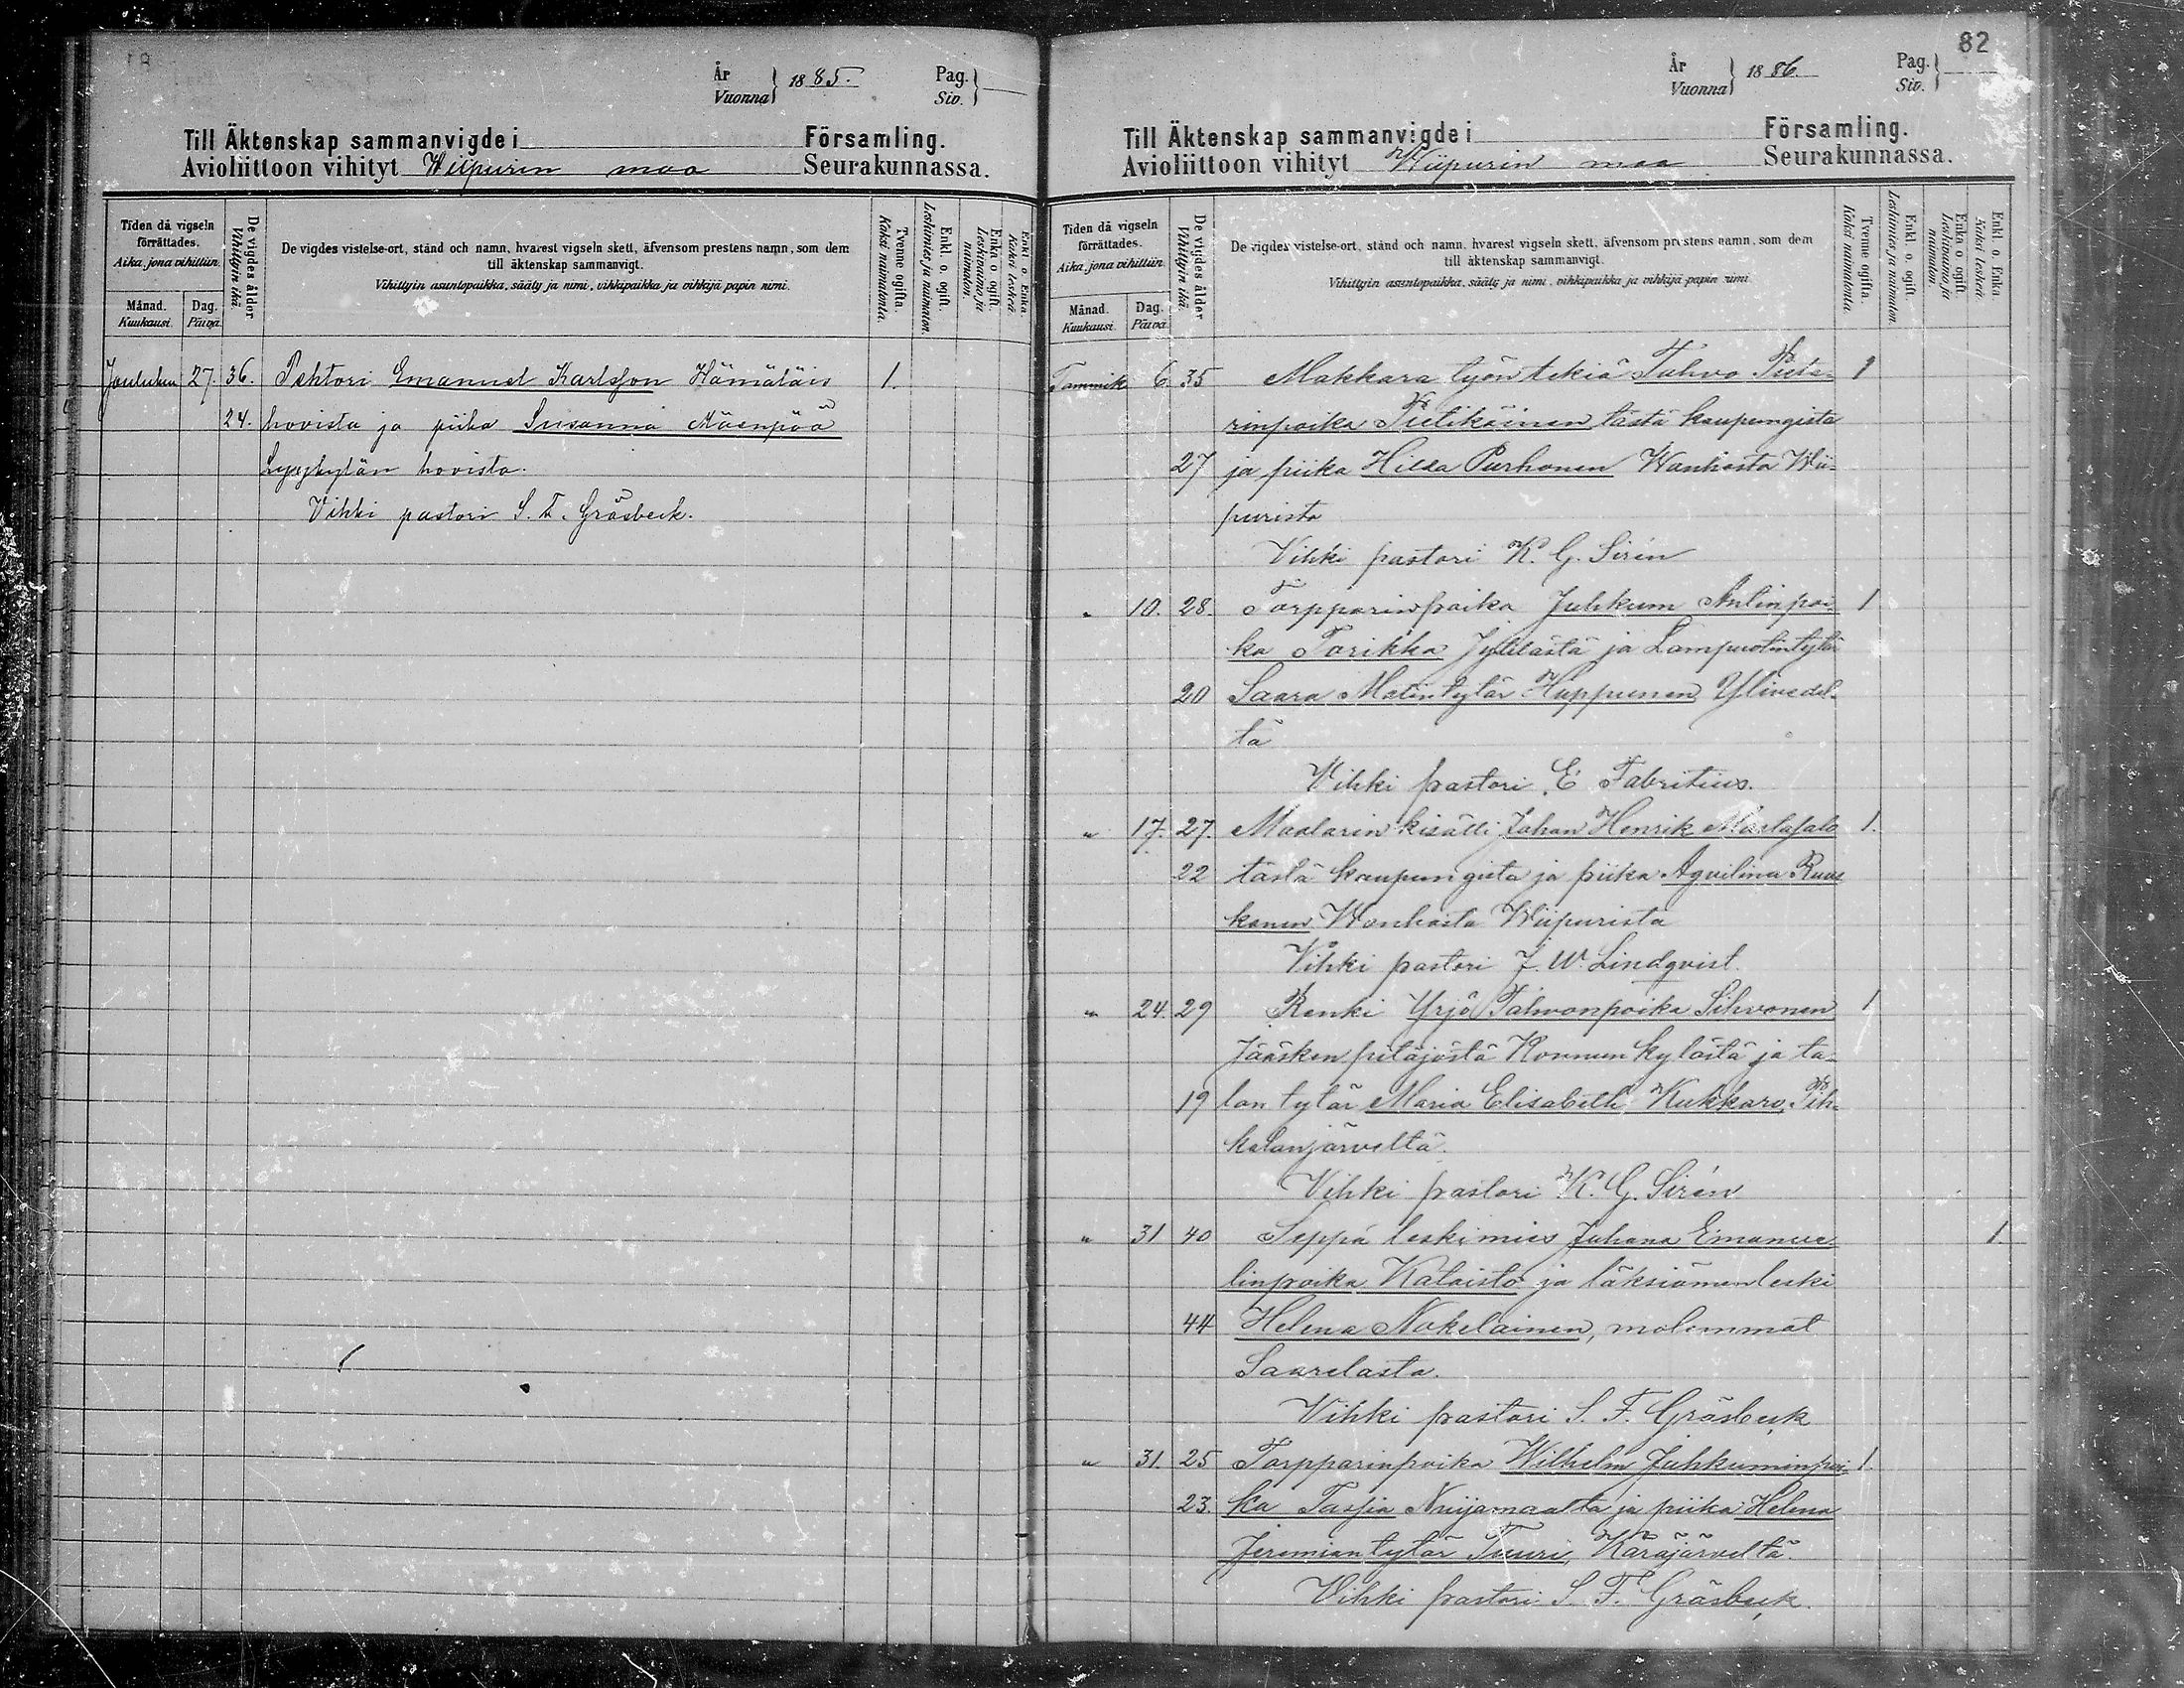 År
Vuonna 1885.
Pag.
Siv.
Till Äktenskap sammanvigde i Församling.
Avioliittoon vihityt Wiipurin maa Seurakunnassa.
Tiden då vigseln förrättades.
Aika, jona vihittiin.
Månad.
Kuukausi.
Dag.
Päivä.
De vigdes ålder
Vihittyin ikä.
De vigdes vistelse-ort, stånd och namn, hvarest vigseln skett, äfvensom prestens namn, som dem
till äktenskap sammanvigt.
Vihittyin asuntopaikka, sääty ja nimi, vihkipaikka ja vihkijä papin nimi.
Tvenne ogifta.
Kaksi naimatonta.
Enkl. o. ogift.
Leskimies ja naimaton.
Enka o. ogift.
Leskivaimo ja naimaton.
Enkl. o. Enka.
Kaksi leskeä.
Joulukuu 27. 36. Pehtori Emanuel Karlsson Hämäläis 1.
24. hovista ja piika Susanna Mäenpää
hovista.
Vihki pastori S. F. Gräsbeck.
82
År
Vuonna 1886.
Pag.
Siv.
Till Äktenskap sammanvigde i Församling.
Avioliittoon vihityt Wiipurin maa Seurakunnassa.
Tiden då vigseln förrättades.
Aika, jona vihittiin.
Månad.
Kuukausi.
Dag.
Päivä.
De vigdes ålder
Vihittyin ikä.
De vigdes vistelse-ort, stånd och namn, hvarest vigseln skett, äfvensom prestens namn, som dem
till äktenskap sammanvigt.
Vihittyin asuntopaikka, sääty ja nimi, vihkipaikka ja vihkijä papin nimi.
Tvenne ogifta.
Kaksi naimatonta.
Enkl. o. ogift.
Leskimies ja naimaton.
Enka o. ogift.
Leskivaimo ja naimaton.
Enkl. o. Enka.
Kaksi leskeä.
Tammik 6. 35 Makkara työntekiä Tahvo Pieta- 1
rinpoika Pietikäinen tästä kaupungista
27 ja piika Hilda Purhonen Wanhasta Wii-
purista
Vihki pastori K. G. Sirén
" 10. 28. Torpparinpoika Juhkum Antinpoi- 1
ka Tarikka ja Lampuotintytär
20 Saara Matintytär Huppunen Ylivedel-
tä
Vihki pastori E. Fabritius.
" 17. 27. Maalarin kisälli Johan Henrik 1.
22 tästä kaupungista ja piika Aqvilina Ruus
kanen Wanhasta Wiipurista
Vihki pastori J. W. Lindqvist.
" 24. 29 Renki Yrjö Tahvonpoika Sihvonen 1
Jääsken pitäjästä Konnun kylästä ja ta-
19 lon tytär Maria Elisabeth Kukkaro, Pih-
kalanjärveltä.
Vihki pastori K. G. Sirén
" 31 40 Seppä leskimies Juhana Emanue 1.
linpoika Kataisto ja läksiämen leski
44 Helena Nokelainen, molemmat
Saarelasta.
Vihki pastori S. F. Gräsbeck
" 31. 25 Torpparinpoika Wilhelm Juhkuminpoi- 1.
23. ka Tassia Nuijamaalta ja piika Helena
Jeremian tytär Tuuri, Käräjärveltä.
Vihki pastori S. F. Gräsbeck.